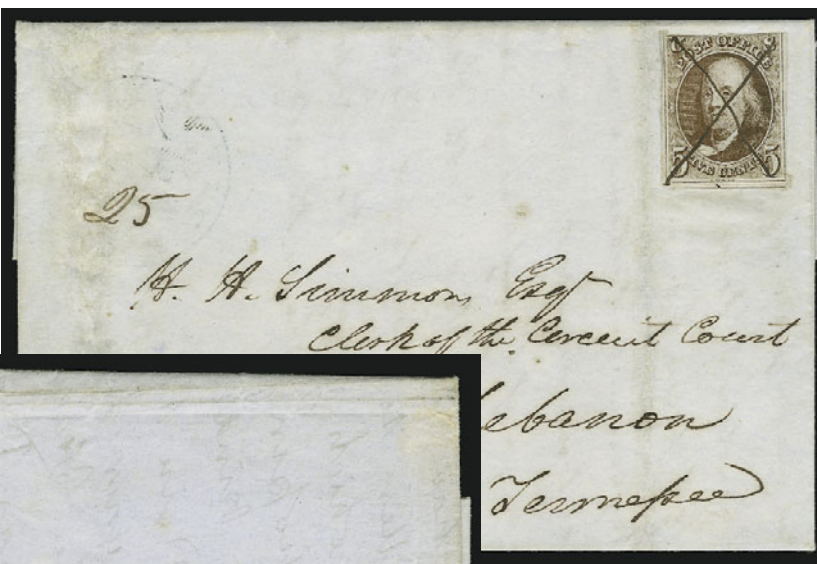 POST OFFICE
5 FIVE CENTS 5
25
H. H. Simmons Esqr
Clerk of the Circuit Court
Lebanon
Tennessee